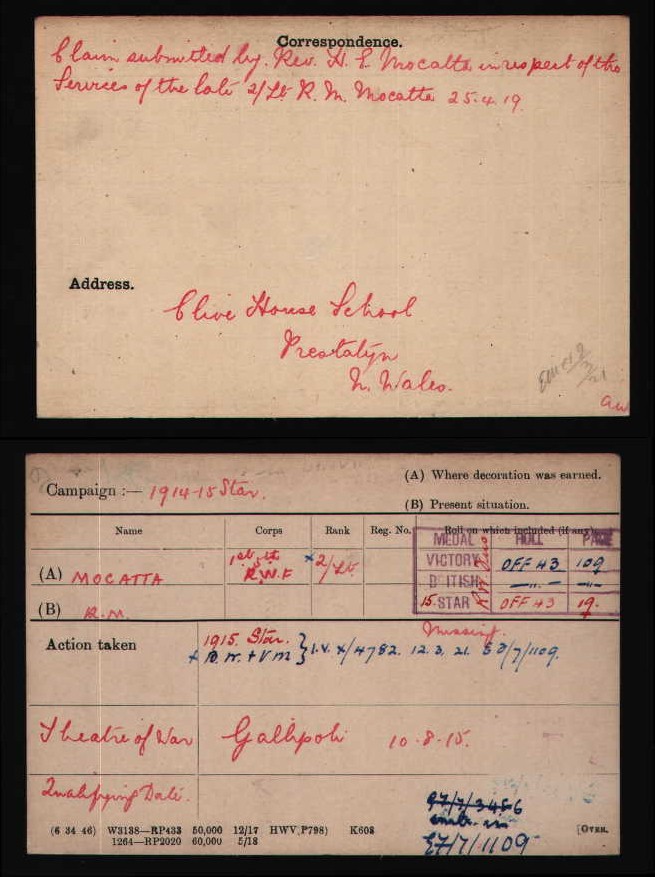 Correspondence.
Claim submitted by Rev. H. E. Mocatta in respect of the
Services of the late 2/Lt R. M. Mocatta 25.4.19.
Address.
Clive House School
Prestatyn
N. Wales.
aw
Campaign :— 1914-15 Star.
(A) Where decoration was earned.
(B) Present situation.
Name Corps Rank Reg. No. Roll on which included (if any)
MEDAL ROLL PAGE
(A) MOCATTA R.W.F × 2/Lt. VICTORY OFF 43 109
BRITISH —"— —"—
(B) R.M. 15 STAR OFF 43 19.
Missing.
Action taken 1915. Star. } I.V. X/4782. 12.3.21. E7/7/1109.
× B.W. + V M
Theatre of War Gallipoli 10-8-15.
Qualifying Date.
E7/7/1109
(6 34 46) W3138—RP433 50,000 12/17 HWV(P798) K608 [OVER.
1264—RP2020 60,000 5/18